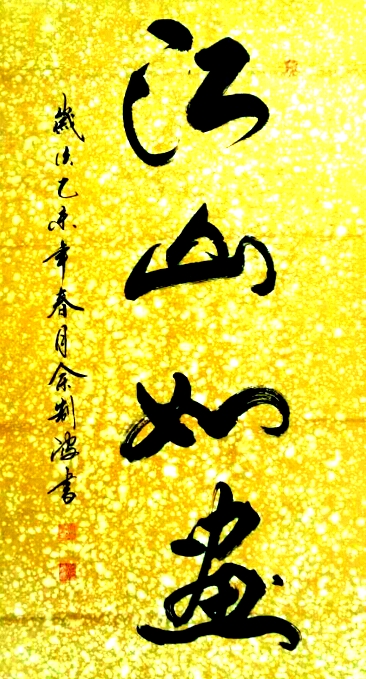 江山如画
岁次乙未年春月余剑波书